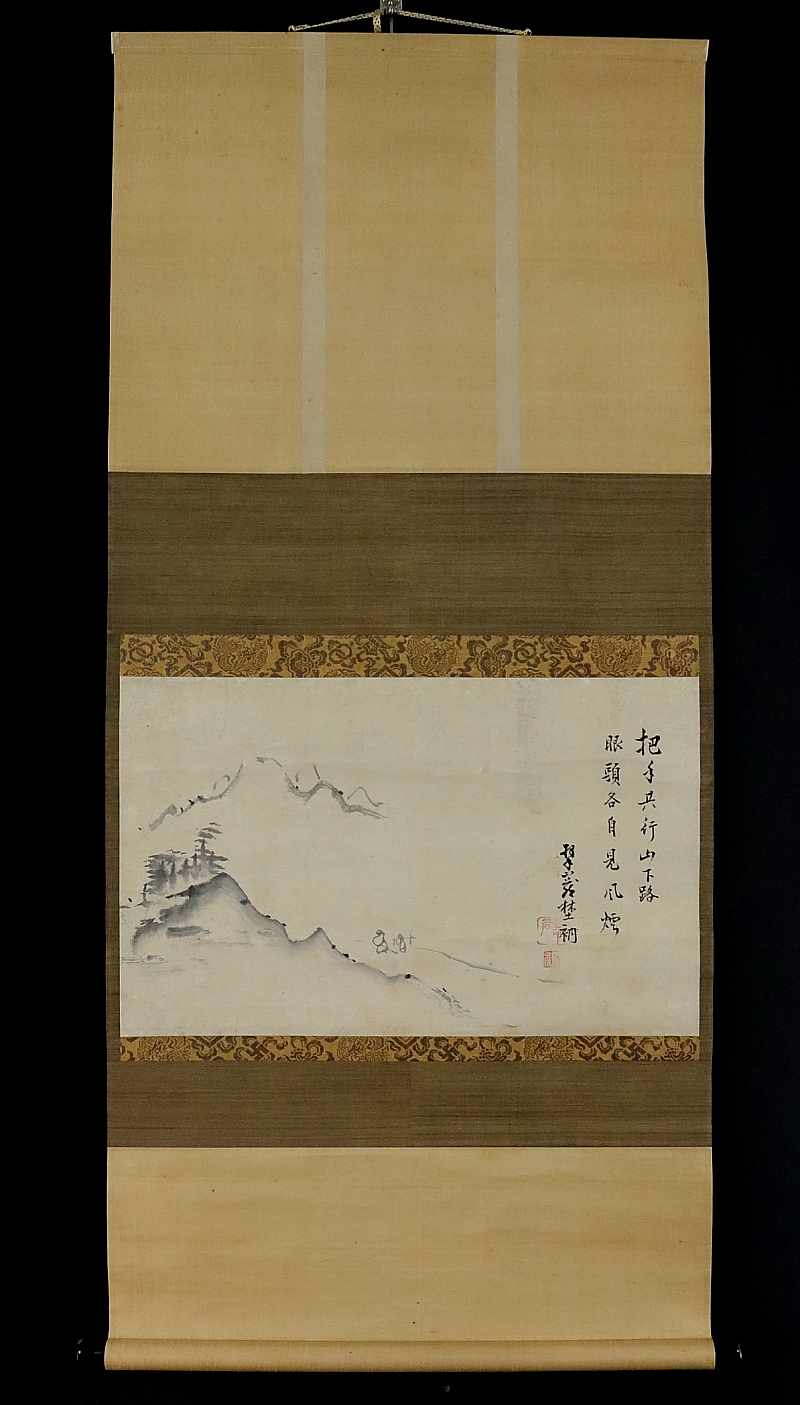 把手共行山下路
眼頭各自見風煙
翠巖埜衲